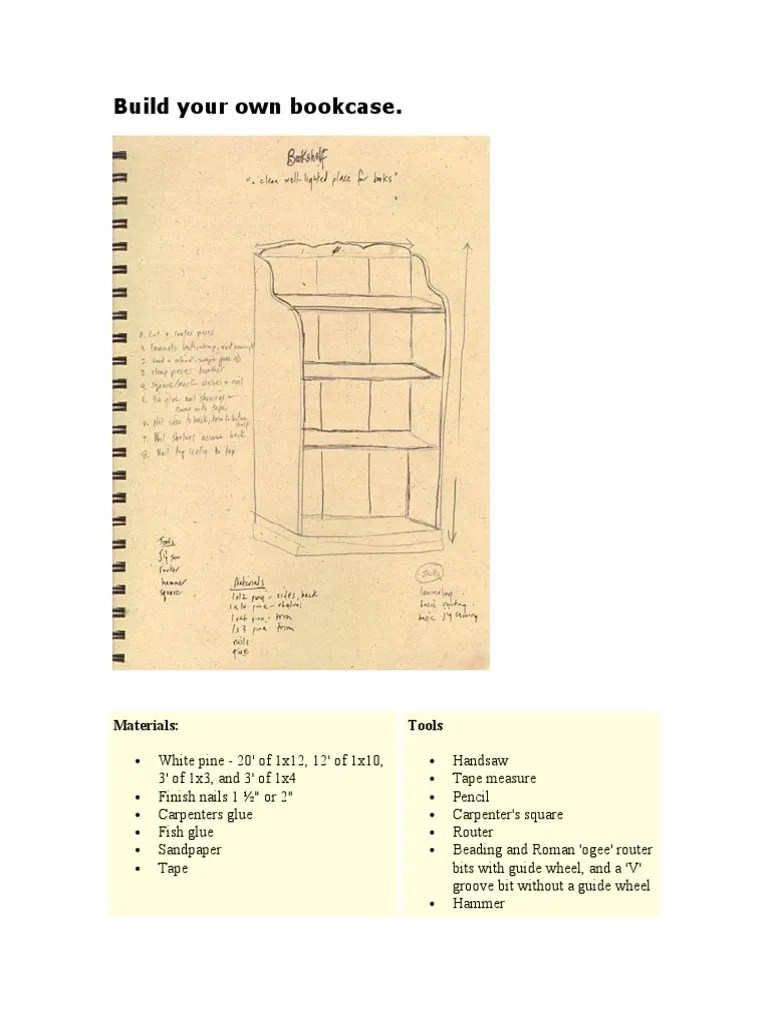 Build your own bookcase.
Bookshelf
clean well-lighted place for books"
0. Cut + router pieces
glue
3. clamp pieces together
4. square/mark shelves + nail
7. Nail shelves across back
8. Nail to top
Tools
jig saw
router
hammer
square
Materials
1x12 pine - sides, back
1x10 pine - shelves
pine - trim
1x3 pine - trim
nails
glue
Skills
laminating
basic routing
basic jig sawing
Materials:
• White pine - 20' of 1x12, 12' of 1x10,
3' of 1x3, and 3' of 1x4
• Finish nails 1 ½" or 2"
• Carpenters glue
• Fish glue
• Sandpaper
• Tape
Tools
• Handsaw
• Tape measure
• Pencil
• Carpenter's square
• Router
• Beading and Roman 'ogee' router
bits with guide wheel, and a 'V'
groove bit without a guide wheel
• Hammer